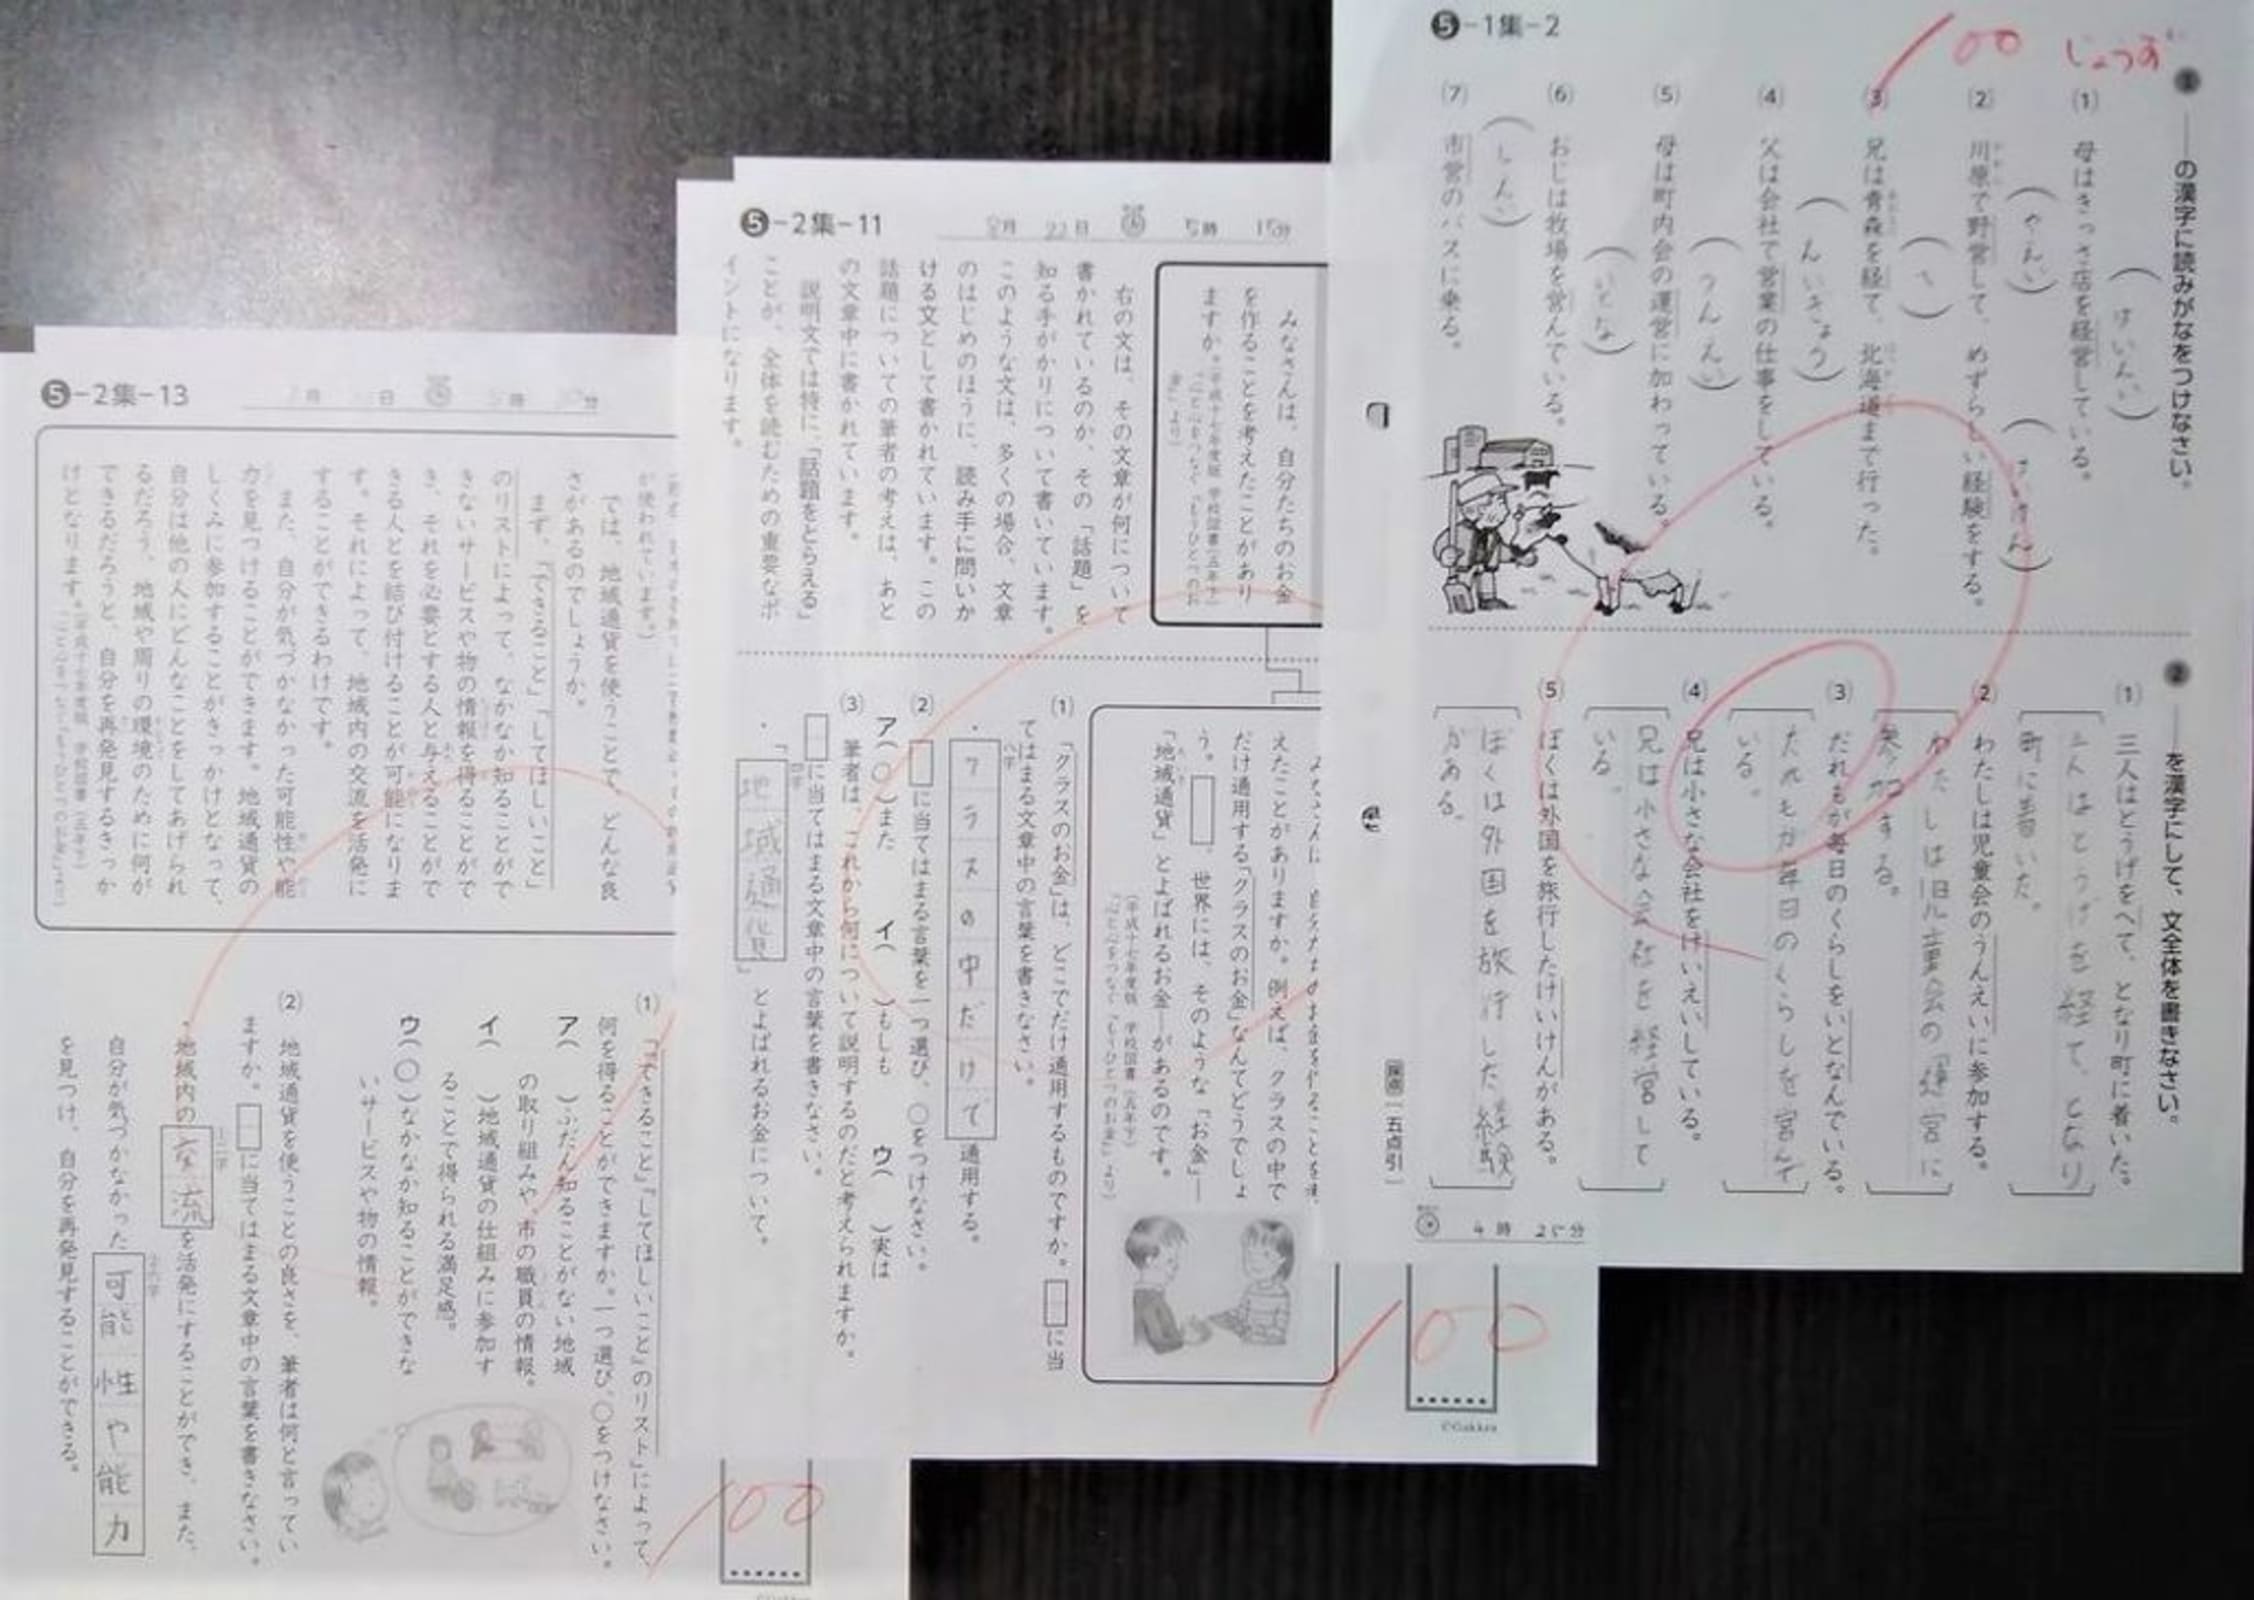 ❺-1集-2
100 じょうず
1 ──の漢字に読みがなをつけなさい。
(1) 母はきっさ店を経営している。
(けいえい)
(2) 川原で野営して、めずらしい経験をする。
(やえい)
(けいけん)
(3) 兄は青森を経て、北海道まで行った。
(へ)
(4) 父は会社で営業の仕事をしている。
(5) 母は町内会の運営に加わっている。
(うんえい)
(6) おじは牧場を営んでいる。
(いとな)
(7) 市営のバスに乗る。
2 ──を漢字にして、文全体を書きなさい。
(1) 三人はとうげをへて、となり町に着いた。
三人はとうげを経て、となり
町に着いた。
(2) わたしは児童会のうんえいに参加する。
わたしは児童会の運営に
参加する。
(3) だれもが毎日のくらしをいとなんでいる。
だれもが毎日のくらしを営んで
いる。
(4) 兄は小さな会社をけいえいしている。
兄は小さな会社を経営して
いる。
(5) ぼくは外国を旅行したけいけんがある。
ぼくは外国を旅行した経験
がある。
採点 一五点引
4時 25分
❺-2集-11
8月 22日 5時 15分
みなさんは、自分たちのお金
を作ることを考えたことがあり
ますか。
右の文は、その文章が何について
書かれているのか、その「話題」を
知る手がかりについて書いています。
このような文は、多くの場合、文章
のはじめのほうに、読み手に問いか
ける文として書かれています。この
話題についての筆者の考えは、あと
の文章中に書かれています。
説明文では特に、「話題をとらえる」
ことが、全体を読むための重要なポ
イントになります。
えたことがありますか。例えば、クラスの中で
だけ通用する「クラスのお金」なんてどうでしょ
う。□、世界には、そのような「お金」──
「地域通貨」とよばれるお金──があるのです。
(平成十七年度版 学校図書(五年下)
『心と心をつなぐ「もうひとつのお金」』より)
(1) 「クラスのお金」は、どこでだけ通用するものですか。□に当
てはまる文章中の言葉を書きなさい。
・クラスの中だけで通用する。
八字
(2) □に当てはまる言葉を一つ選び、○をつけなさい。
ア(○)また イ( )もしも ウ( )実は
(3) 筆者は、これから何について説明するのだと考えられますか。
□に当てはまる文章中の言葉を書きなさい。
四字
・「地域通貨」とよばれるお金について。
100
©Gakken
❺-2集-13
月 日 時 分
が使われています。)
では、地域通貨を使うことで、どんな良
さがあるのでしょうか。
まず、「できること」「してほしいこと」
のリストによって、なかなか知ることがで
きないサービスや物の情報を得ることがで
き、それを必要とする人と与えることがで
きる人とを結び付けることが可能になりま
す。それによって、地域内の交流を活発に
することができるわけです。
また、自分が気づかなかった可能性や能
力を見つけることができます。地域通貨の
しくみに参加することがきっかけとなって、
自分は他の人にどんなことをしてあげられ
るだろう、地域や周りの環境のために何が
できるだろうと、自分を再発見するきっか
けとなります。
(1) 「『できること』『してほしいこと』のリスト」によって、
何を得ることができますか。一つ選び、○をつけなさい。
ア( )ふだん知ることがない地域
の取り組みや、市の職員の情報。
イ( )地域通貨の仕組みに参加す
ることで得られる満足感。
ウ(○)なかなか知ることができな
いサービスや物の情報。
(2) 地域通貨を使うことの良さを、筆者は何と言ってい
ますか。□に当てはまる文章中の言葉を書きなさい。
二字
・地域内の交流を活発にすることができ、また、
六字
自分が気づかなかった可能性や能力
を見つけ、自分を再発見することができる。
100